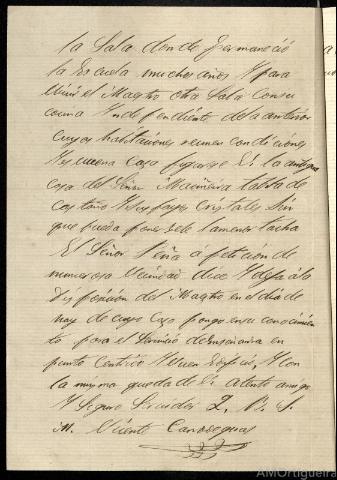 la Sala donde permaneció
la Escuela muchos años Y para
vivir el Magtro otra Sala con su
cocina Yndependiente de la anterior
cuyas habitaciones reunen condiciones
Y buena casa figurese Es la antigua
casa del Señor
castaño Cristales Sin
que pueda ponersele la menor tacha
El Señor Peña á petición de
numeroso Vecindad dice Y deja á la
Disposición del Magtro en el dia de
hoy de cuyo caso pongo en su conocimien
to para el Servicio de Enseñanza en
punto Centrico Y buen Edificio, Y con
la misma queda de V. atento amigo
Y Seguro Servidor Q. B. S.
M. Vicente
AMOrtigueira